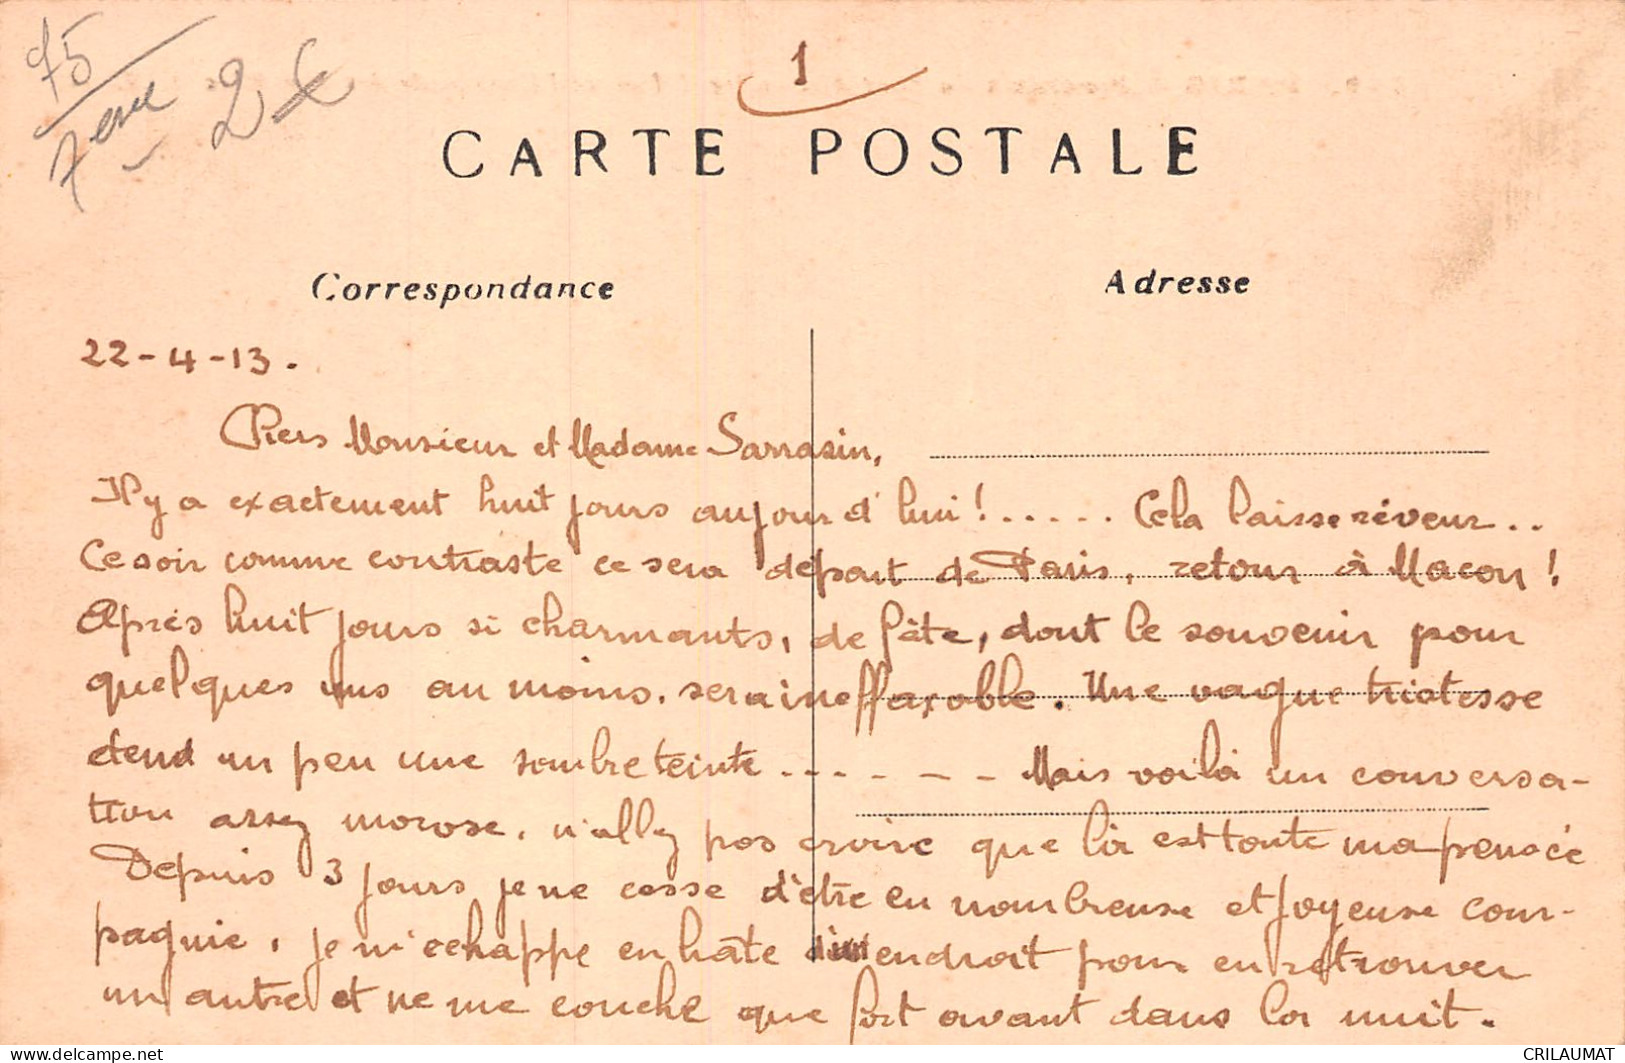 75
7eme
2€
1
CARTE POSTALE
Correspondance
Adresse
22-4-13.
Chers Monsieur et Madame Sarrasin,
Il y a exactement huit jours aujourd'hui !..... Cela laisse rêveur..
Ce soir comme contraste ce sera départ de Paris, retour à Macon !
Après huit jours si charmants, de fête, dont le souvenir pour
quelques uns au moins, sera ineffaçable. Une vague tristesse
étend un peu une sombre teinte....--- Mais voilà un conversa-
tion assez morose, n'allez pas croire que là est toute ma pensée
Depuis 3 jours je ne cesse d'être en nombreuse et joyeuse com-
pagnie, je m'échappe en hâte d'un endroit pour en retrouver
un autre et ne me couche que fort avant dans la nuit.
delcampe.net
CRILAUMAT